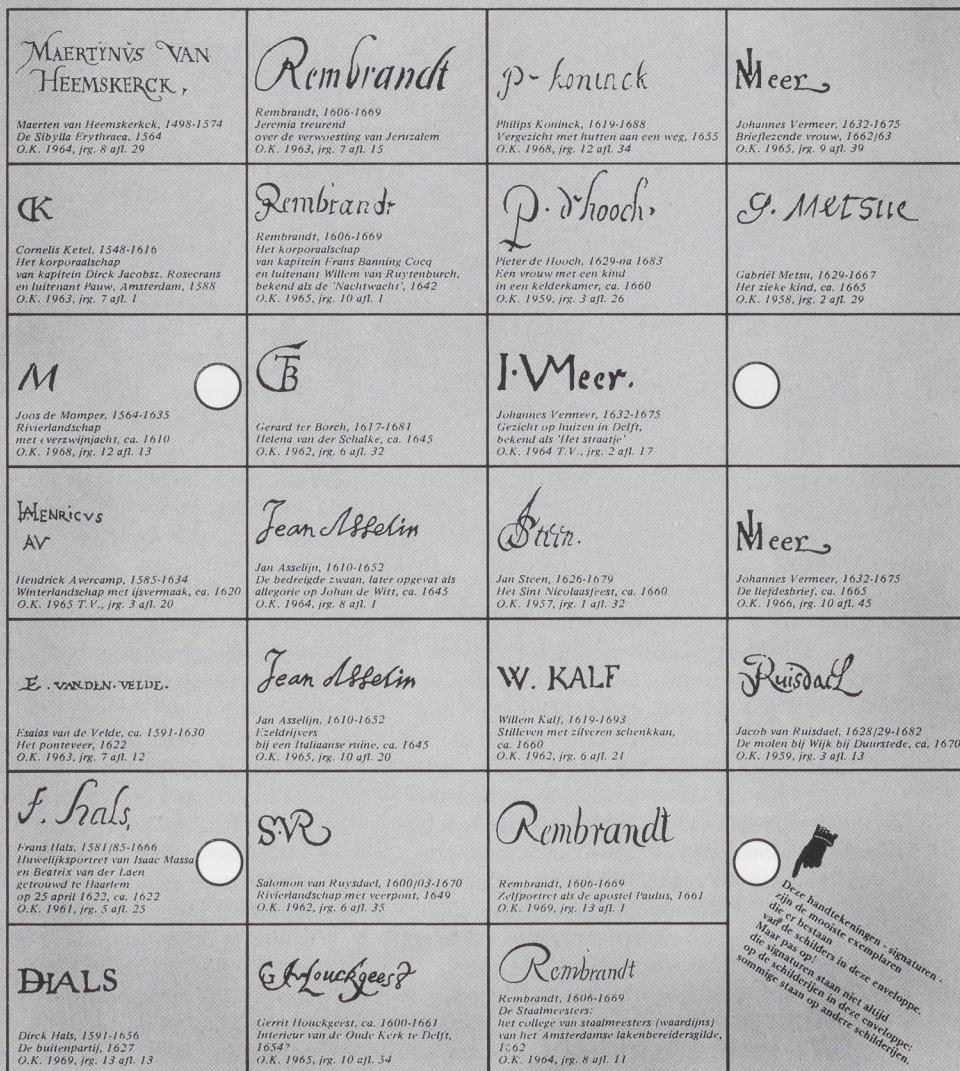 MAERTINVS VAN
HEEMSKERCK,
Maerten van Heemskerkck, 1498-1574
De Sibylla Erythraea, 1564
O.K. 1964, jrg. 8 afl. 29
Rembrandt
Rembrandt, 1606-1669
Jeremia treurend
over de verwoesting van Jeruzalem
O.K. 1963, jrg. 7 afl. 15
p- koninck
Philips Koninck, 1619-1688
Vergezicht met hutten aan een weg, 1655
O.K. 1968, jrg. 12 afl. 34
IMeer
Johannes Vermeer, 1632-1675
Brieflezende vrouw, 1662/63
O.K. 1965, jrg. 9 afl. 39
CK
Cornelis Ketel, 1548-1616
Het korporaalschap
van kapitein Dirck Jacobsz. Rosecrans
en luitenant Pauw, Amsterdam, 1588
O.K. 1963, jrg. 7 afl. 1
Rembrandt
Rembrandt, 1606-1669
Het korporaalschap
van kapitein Frans Banning Cocq
en luitenant Willem van Ruytenburch,
bekend als de 'Nachtwacht', 1642
O.K. 1965, jrg. 10 afl. 1
P. d'hooch,
Pieter de Hooch, 1629-na 1683
Een vrouw met een kind
in een kelderkamer, ca. 1660
O.K. 1959, jrg. 3 afl. 26
G. Metsue
Gabriël Metsu, 1629-1667
Het zieke kind, ca. 1665
O.K. 1958, jrg. 2 afl. 29
M
Joos de Momper, 1564-1635
Rivierlandschap
met everzwijnjacht, ca. 1610
O.K. 1968, jrg. 12 afl. 13
GTB
Gerard ter Borch, 1617-1681
Helena van der Schalke, ca. 1645
O.K. 1962, jrg. 6 afl. 32
I·VMeer.
Johannes Vermeer, 1632-1675
Gezicht op huizen in Delft,
bekend als 'Het straatje'
O.K. 1964 T.V., jrg. 2 afl. 17
HENRICVS
AV
Hendrick Avercamp, 1585-1634
Winterlandschap met ijsvermaak, ca. 1620
O.K. 1965 T.V., jrg. 3 afl. 20
Jean Asselin
Jan Asselijn, 1610-1652
De bedreigde zwaan, later opgevat als
allegorie op Johan de Witt, ca. 1645
O.K. 1964, jrg. 8 afl. 1
JSteen.
Jan Steen, 1626-1679
Het Sint Nicolaasfeest, ca. 1660
O.K. 1957, jrg. 1 afl. 32
IMeer
Johannes Vermeer, 1632-1675
De liefdesbrief, ca. 1665
O.K. 1966, jrg. 10 afl. 45
E. VANDEN. VELDE.
Esaias van de Velde, ca. 1591-1630
Het ponteveer, 1622
O.K. 1963, jrg. 7 afl. 12
Jean Asselin
Jan Asselijn, 1610-1652
Ezeldrijvers
bij een Italiaanse ruine, ca. 1645
O.K. 1965, jrg. 10 afl. 20
W. KALF
Willem Kalf, 1619-1693
Stilleven met zilveren schenkkan,
ca. 1660
O.K. 1962, jrg. 6 afl. 21
JRuisdael
Jacob van Ruisdael, 1628/29-1682
De molen bij Wijk bij Duurstede, ca. 1670
O.K. 1959, jrg. 3 afl. 13
F. hals,
Frans Hals, 1581/85-1666
Huwelijksportret van Isaac Massa
en Beatrix van der Laen
getrouwd te Haarlem
op 25 april 1622, ca. 1622
O.K. 1961, jrg. 5 afl. 25
S·VR
Salomon van Ruysdael, 1600/03-1670
Rivierlandschap met veerpont, 1649
O.K. 1962, jrg. 6 afl. 35
Rembrandt
Rembrandt, 1606-1669
Zelfportret als de apostel Paulus, 1661
O.K. 1969, jrg. 13 afl. 1
Deze handtekeningen - signaturen -
zijn de mooiste exemplaren
die er bestaan
van de schilders in deze enveloppe.
Maar pas op!
die signaturen staan niet altijd
op de schilderijen in deze enveloppe:
sommige staan op andere schilderijen.
DHALS
Dirck Hals, 1591-1656
De buitenpartij, 1627
O.K. 1969, jrg. 13 afl. 13
G Houckgeest
Gerrit Houckgeest, ca. 1600-1661
Interieur van de Oude Kerk te Delft,
1654?
O.K. 1965, jrg. 10 afl. 54
Rembrandt
Rembrandt, 1606-1669
De Staalmeesters:
het college van staalmeesters (waardijns)
van het Amsterdamse lakenbereidersgilde,
O.K. 1964, jrg. 8 afl. 11